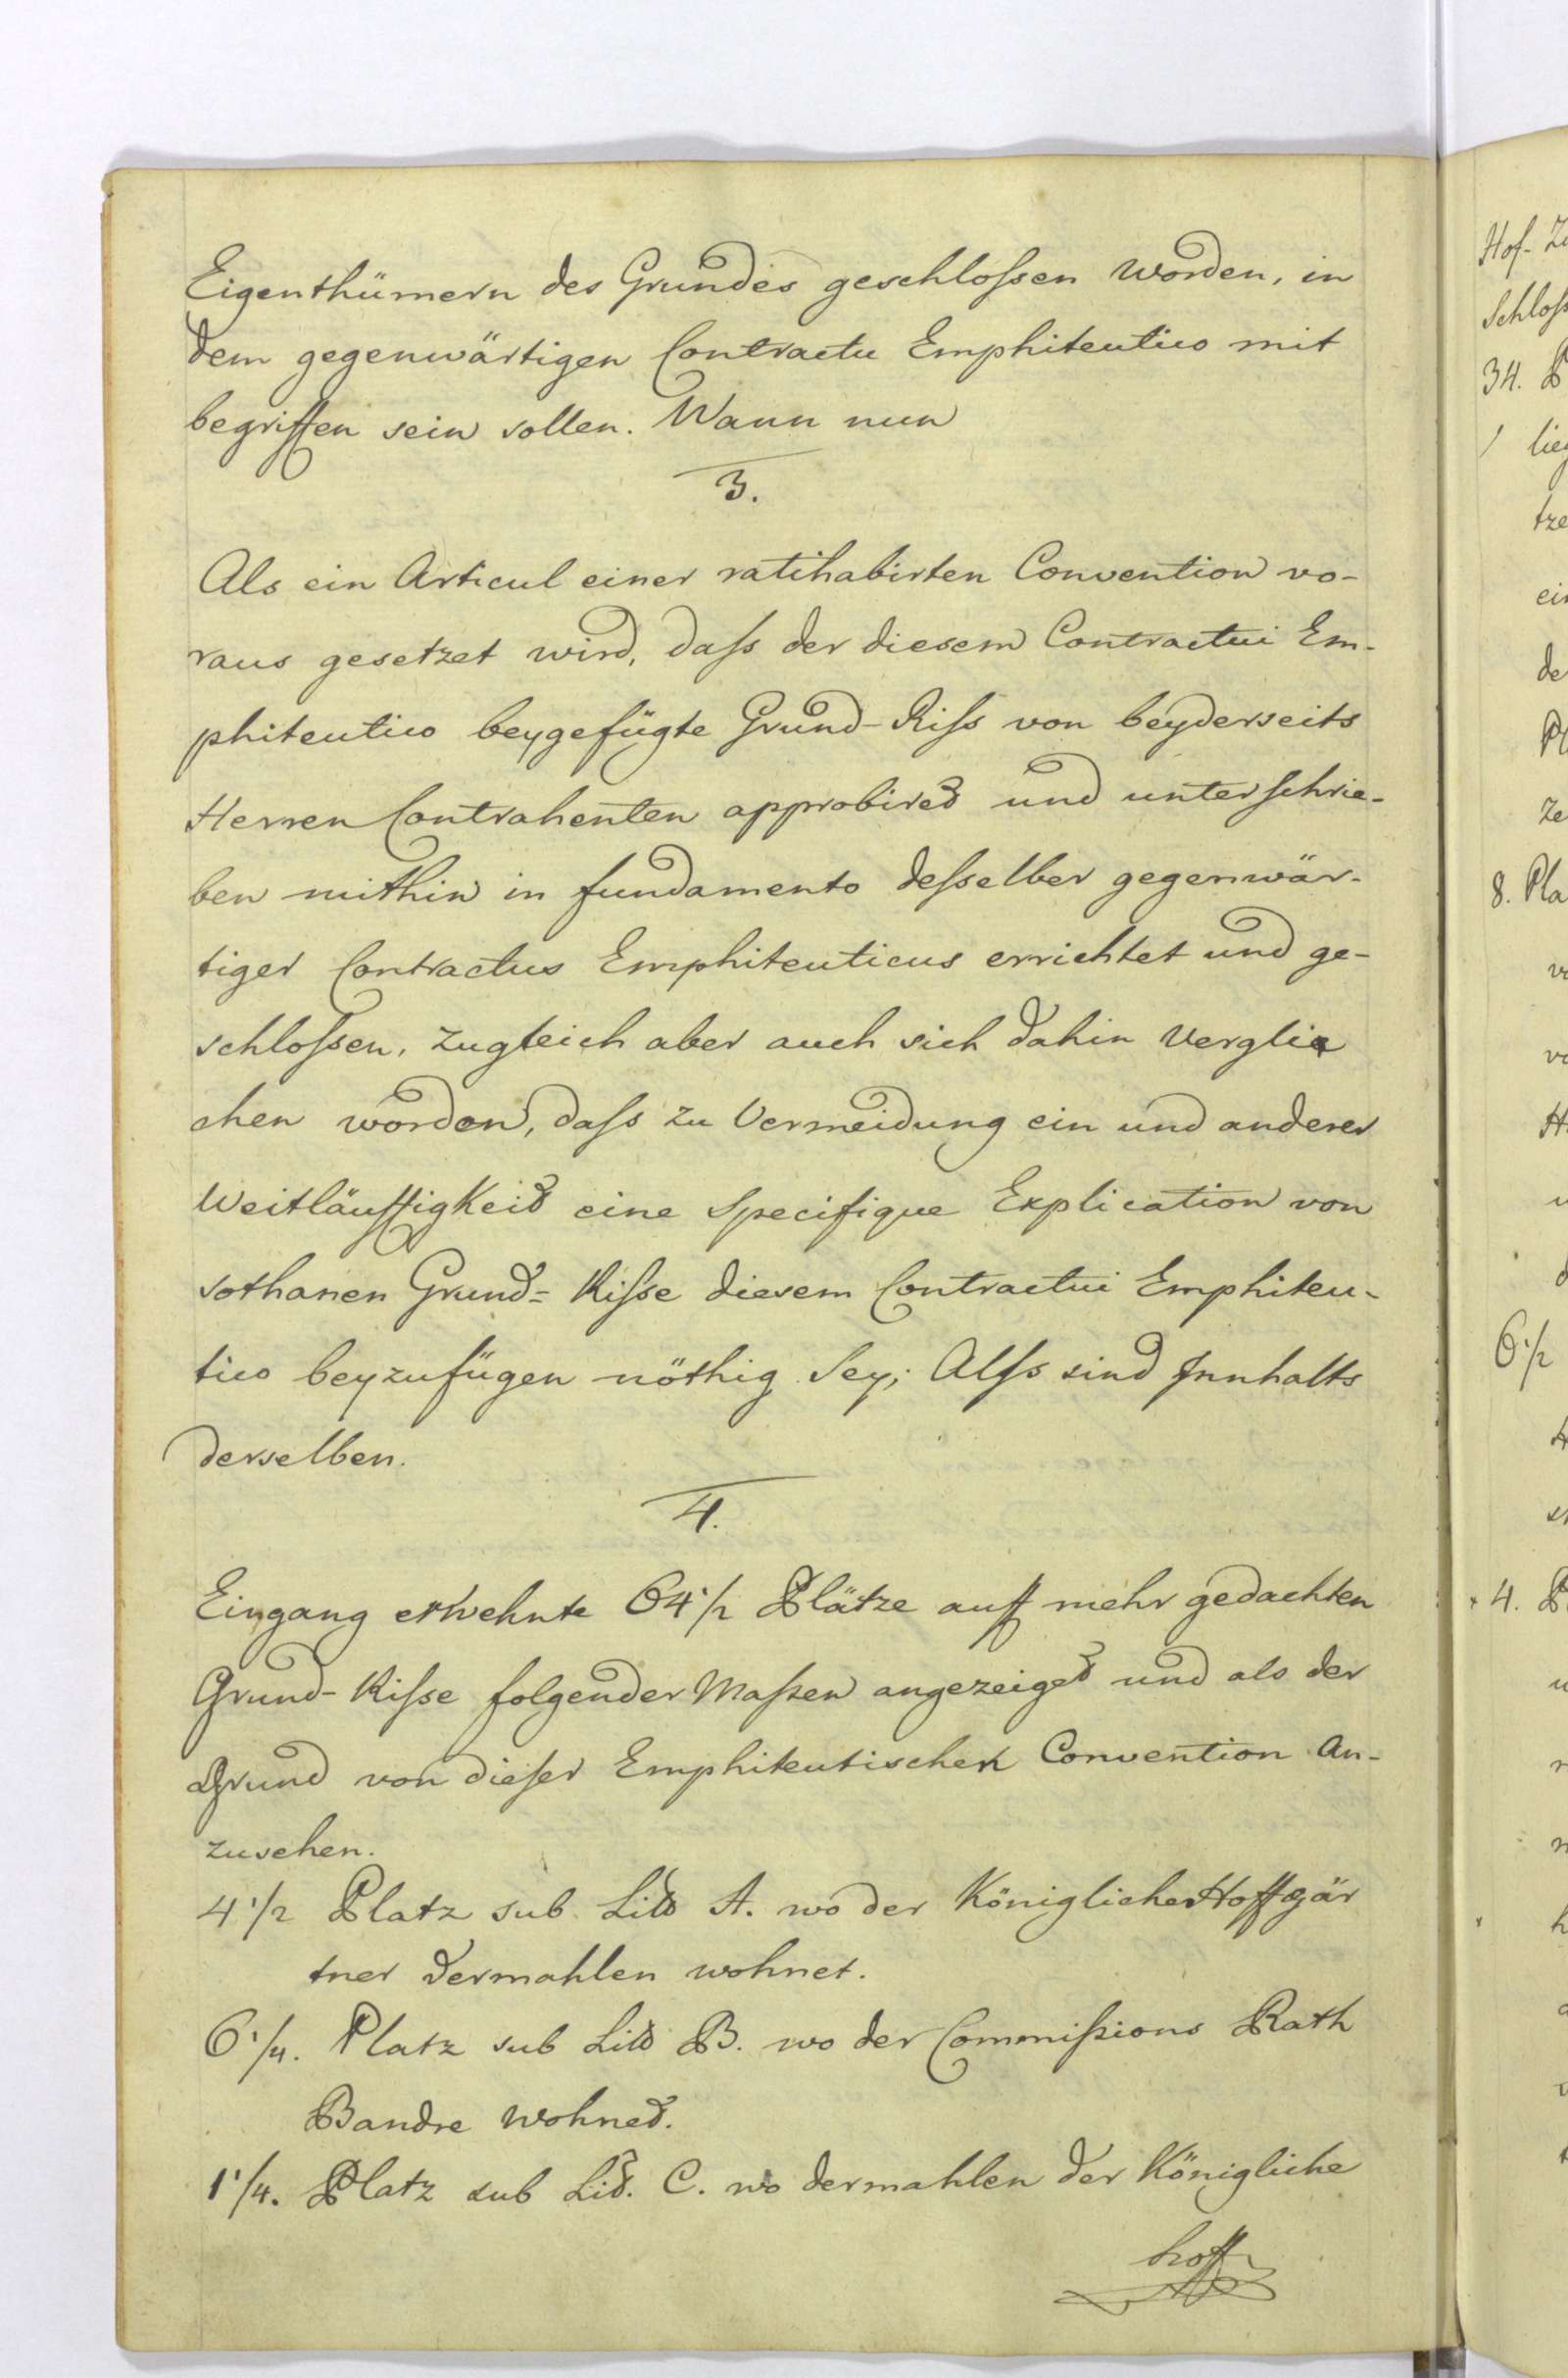 Eigenthümern des Grundes geschloßen worden, in
dem gegenwärtigen Contractu Emphiteutico mit
begriffen sein sollen. Wann nun
3.
Als ein Articul einer ratihabirten Convention vo-
raus gesetzet wird, daß der diesem Contractui Em-
phiteutico beygefügte Grund-Riß von beyderseits
Herren Contrahenten approbiret und unterschrie-
ben mithin in fundamento deßelber gegenwär-
tiger Contractus Emphiteuticus errichtet und ge-
schloßen, zugleich aber auch sich dahin verglie
chen worden, daß zu Vermeidung ein und anderer
Weitläuffigkeit eine Specifique Explication von
sothanen Grund-Riße diesem Contractui Emphiteu-
tico beyzufügen nöthig sey; Alß sind Innhalts
derselben.
4.
Eingang erwehnte 64 1/2 Plätze auff mehr gedachten
Grund-Riße folgender Maßen angezeiget und als der
Grund von dieser Emphiteutischen Convention an-
zusehen.
4 1/2 Platz sub Lit A. wo der Königliche Hoffgär
tner dermahlen wohnet.
6 1/4. Platz sub Lit B. wo der Commißions Rath
Bandre wohnet.
1 1/4. Platz sub Lit. C. wo dermahlen der Königliche
hoff
Hof-
Schloß
34.
8. Pla
6 1/2
4.